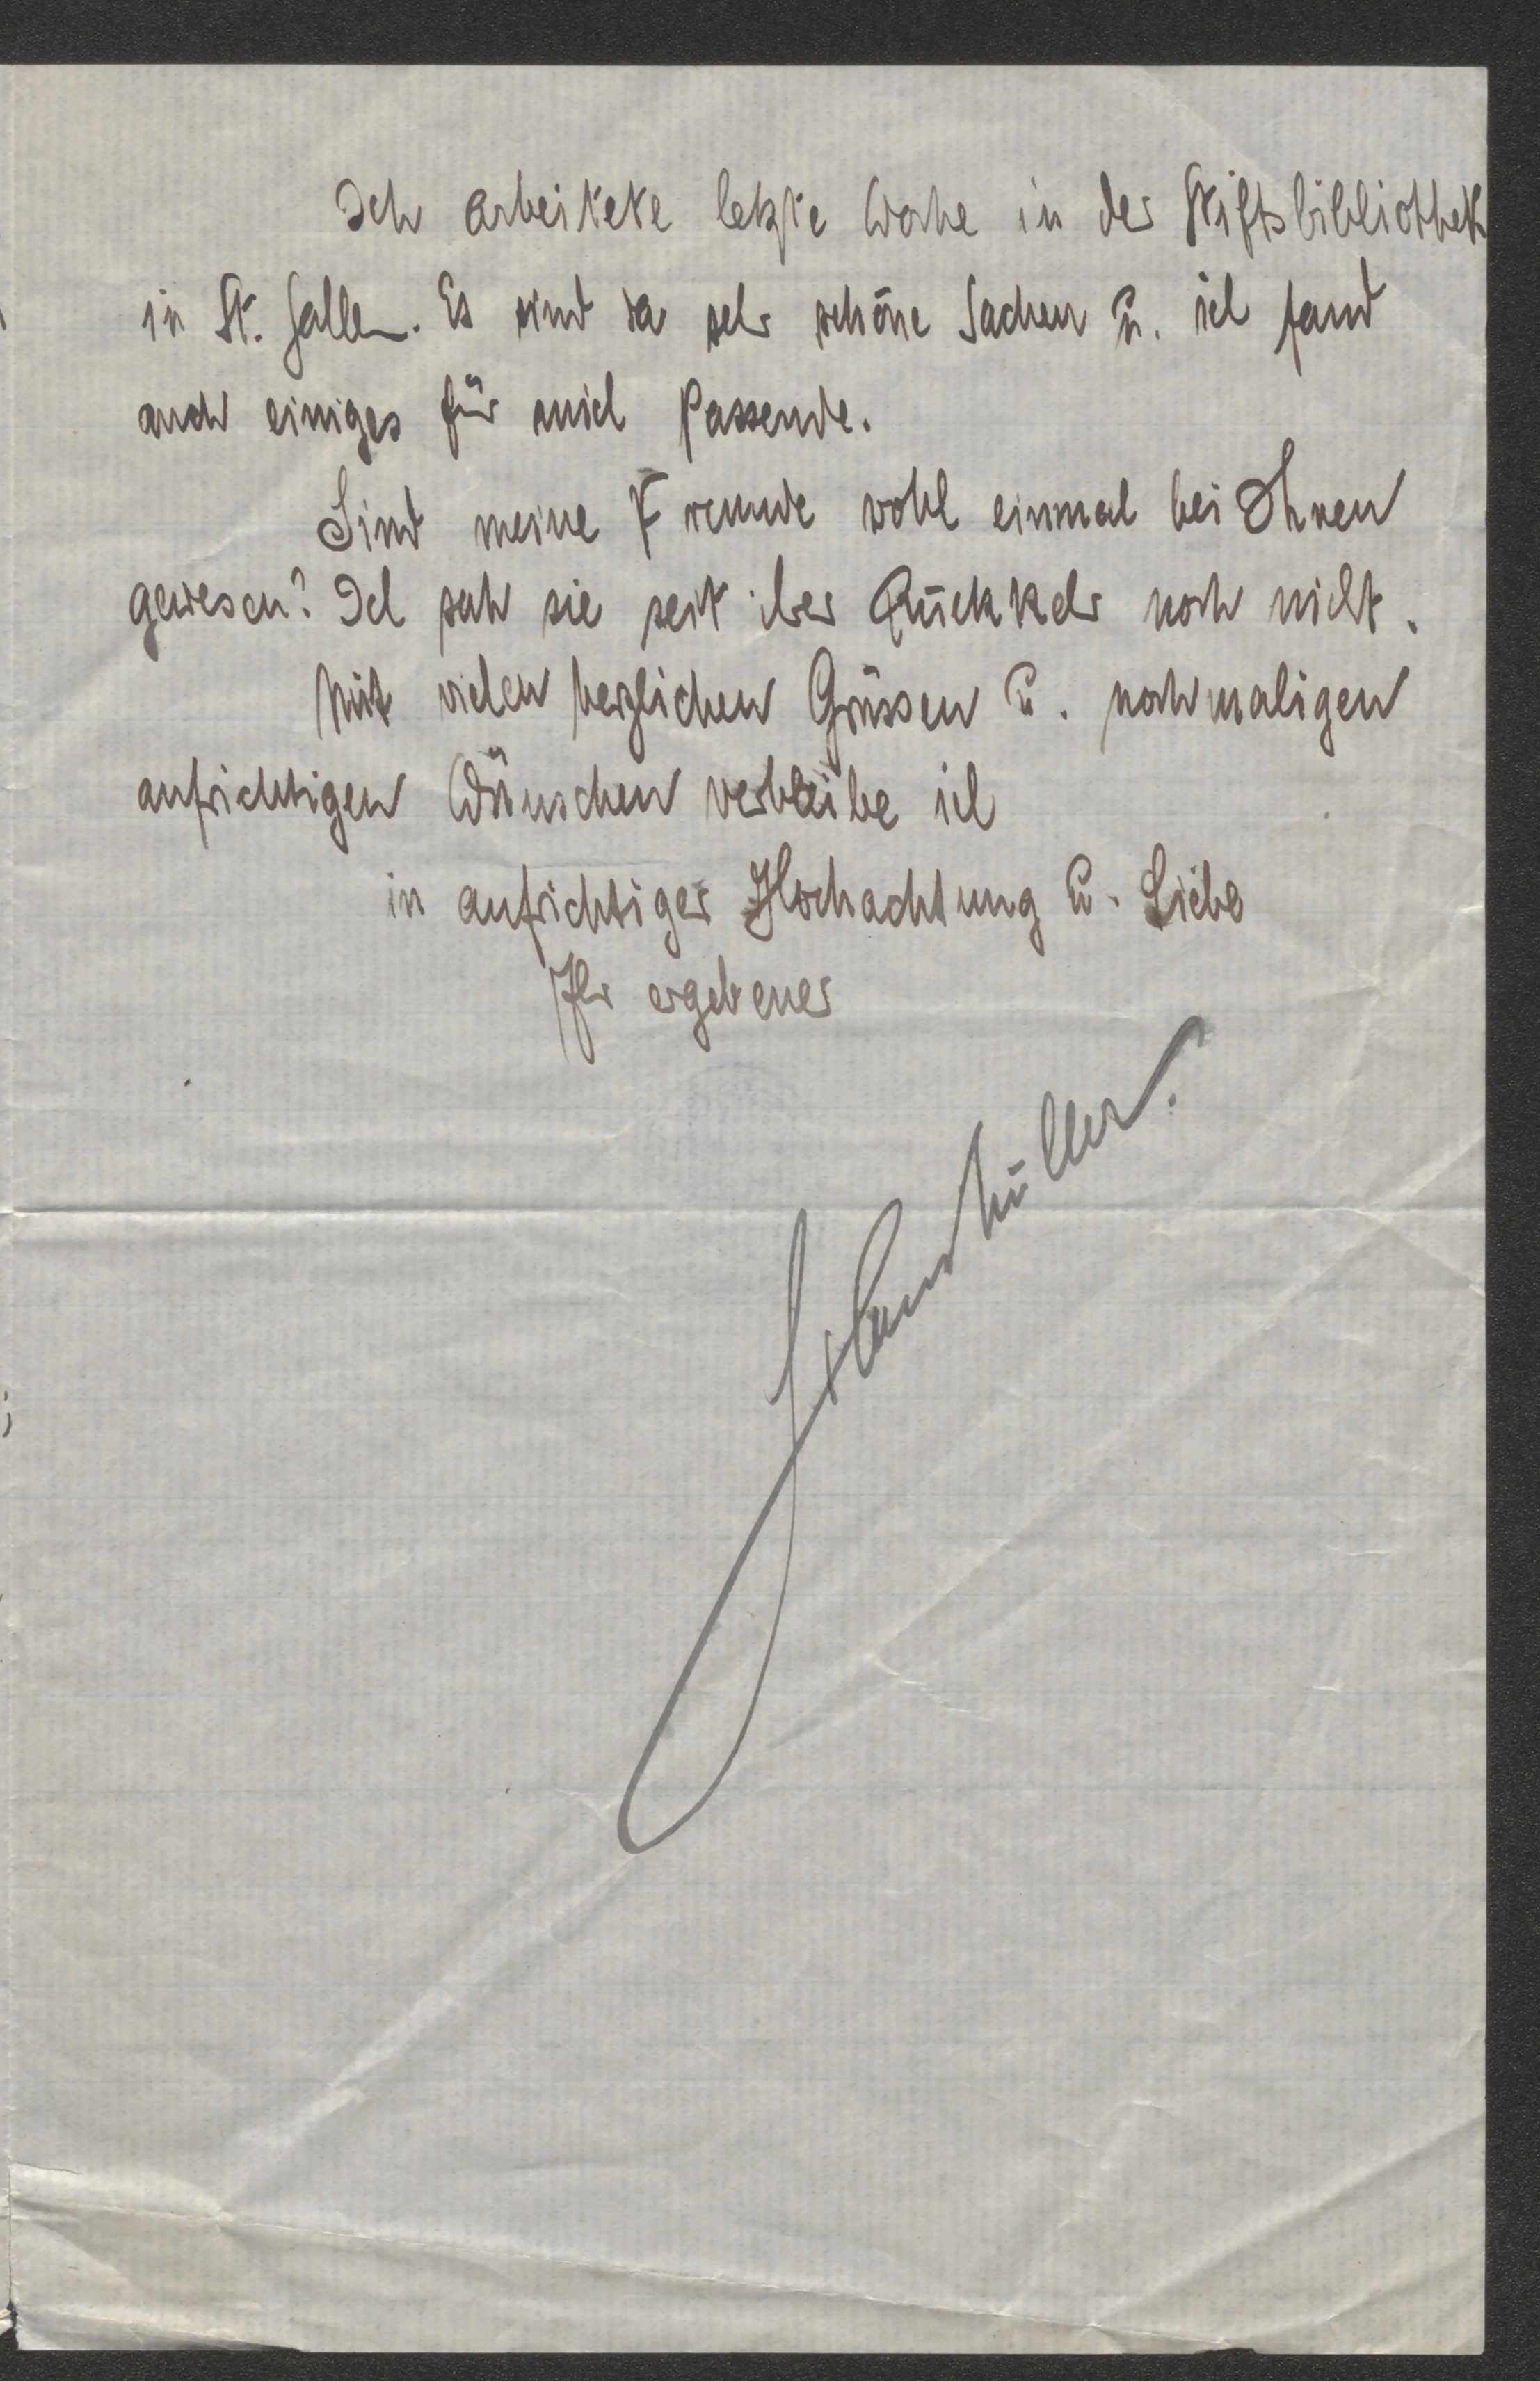 Ich arbeitete letzte Woche in der Stiftsbibliothek
in St. Gallen. Es sind da sehr schöne Sachen u. ich fand
auch einiges für mich Passende.
Sind meine Freunde wohl einmal bei Ihnen
gewesen? Ich sah sie seit ihrer Rückkehr noch nicht.
Mit vielen herzlichen Grüssen u. nochmaligen
aufrichtigen Wünschen verbleibe ich
in aufrichtiger Hochachtung u. Liebe
Ihr ergebener
Müller.